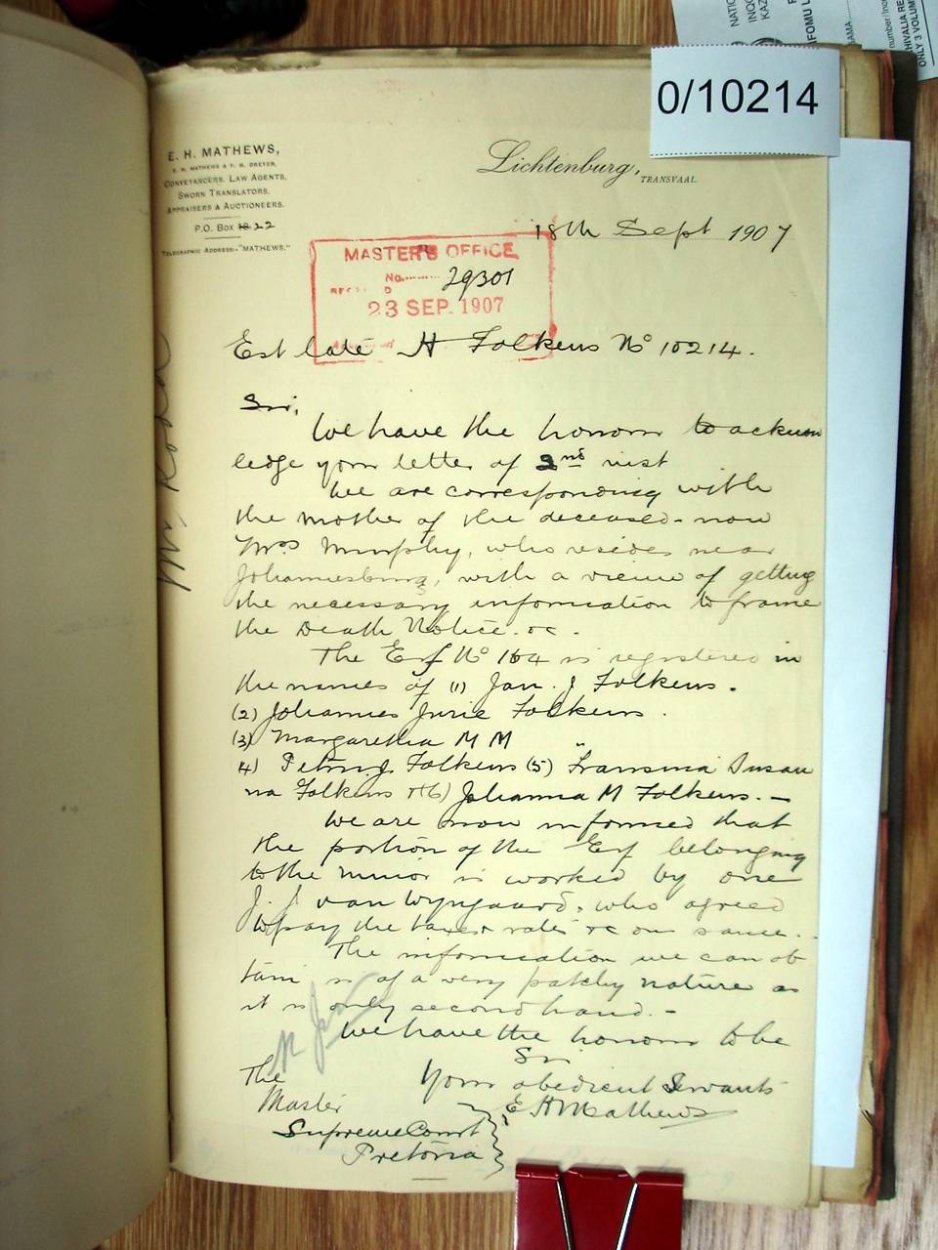 0/10214
E. H. MATHEWS,
CONVEYANCERS, LAW AGENTS,
SWORN TRANSLATORS,
APPRAISERS & AUCTIONEERS.
P.O. Box 22
TELEGRAPHIC ADDRESS:-"MATHEWS."
Lichtenburg,
TRANSVAAL.
18th Sept 1907
MASTER'S OFFICE
No. 29301
23 SEP. 1907
Est late H Folkens No 10214.
Sir,
We have the honour to acknow
ledge your letter of 2nd inst
We are corresponding with
the mother of the deceased - now
Mrs Murphy, who resides near
Johannesburg, with a view of getting
the necessary information to frame
the Death Notice. &c.
The Erf No 164 is registered in
the names of (1) Jan. J Folkens.
(2) Johannes Jurie Folkens.
(3) Margaretha M M
4) Petrus J. Folkens (5) Fransina Susan
na Folkens & (6) Johanna M Folkens. -
We are now informed that
the portion of the Erf belonging
to the minor is worked by one
J. J van Wyngaard, who agreed
to pay the taxes & rates &c on same.
The information we can ob
tain is of a very patchy nature as
it is only second hand. -
We have the honour to be
Sir
Your obedient Servants
E H Mathews
The
Master
Supreme Court
Pretoria